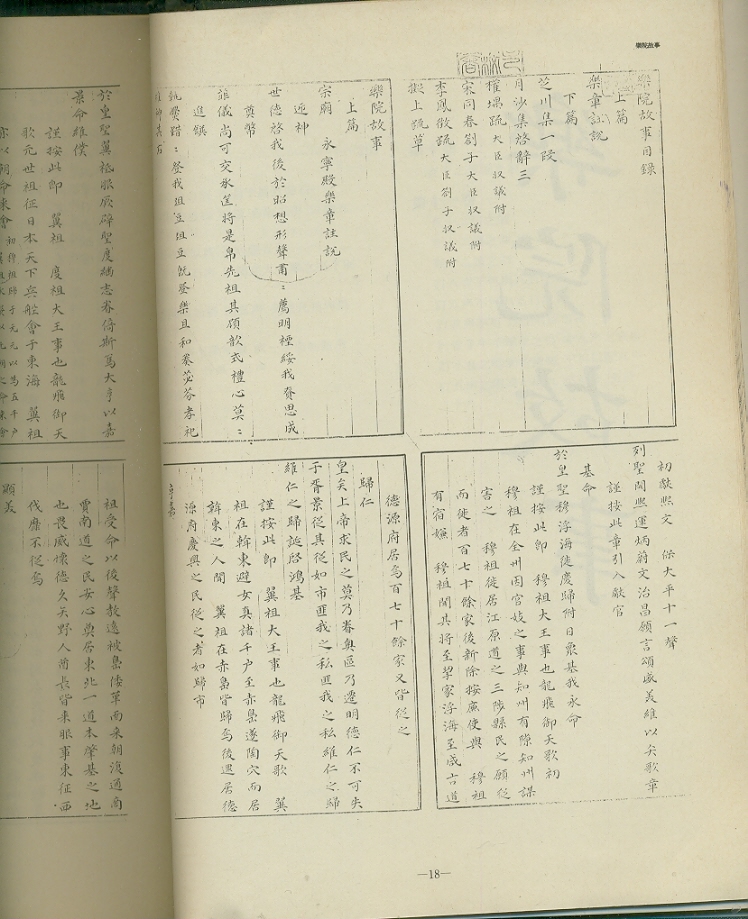 樂院故事
樂院故事目錄
上篇
樂章註說
下篇
芝川集一段
月沙集啓辭三
權堣疏大臣収議附
宋同春劄子大臣収議附
李鳳徵疏大臣劄子収議附
樂院故事
上篇
宗廟 永寧殿樂章註說
迎神
世德啓我後於昭想形聲肅〻薦明禋綏我賚思成
奠幣
菲儀尚可交承筐將是帛先祖其顧歆式禮心莫〻
進饌
執爨踖〻登我俎豆俎豆旣登樂且和奏苾芬孝祀
初獻熙文 保太平十一聲
列聖開熙運炳蔚文治昌願言頌盛美維以矢歌章
謹按此章引入獻官
基命
於皇聖穆浮海徙慶歸附日衆基我永命
謹按此卽 穆祖大王事也龍飛御天歌初
穆祖在全州因官妓之事與知州有隙知州謀
害之 穆祖徙居江原道之三陟縣民之願從
而徙者百七十餘家後新除按廉使與 穆祖
有宿嫌 穆祖聞其將至挈家浮海至咸吉道
德源府居焉百七十餘家又皆從之
歸仁
皇矣上帝求民之莫乃眷奧區乃遷明德仁不可失
于胥景從其從如市匪我之私匪我之私維仁之歸
維仁之歸誕啓鴻基
謹按此卽 翼祖大王事也龍飛御天歌 翼
祖在斡東避女眞諸千戶至赤島遂陶穴而居
斡東之人聞 翼祖在赤島皆歸焉後還居德
源府慶興之民從之者如歸市
亨嘉
於皇聖翼祗服厥辟聖度緝志眷倚斯篤大亨以嘉
景命維僕
謹按此卽 翼祖 度祖大王事也龍飛御天
歌元世祖征日本天下兵船會于東海 翼祖
祖受命以後聲敎遠被島倭革面來朝復通商
賈南道之民安心奠居東北一道本肇基之地
也畏威懷德久矣野人酋長皆來服事東征西
伐靡不從焉
顯美
—18—